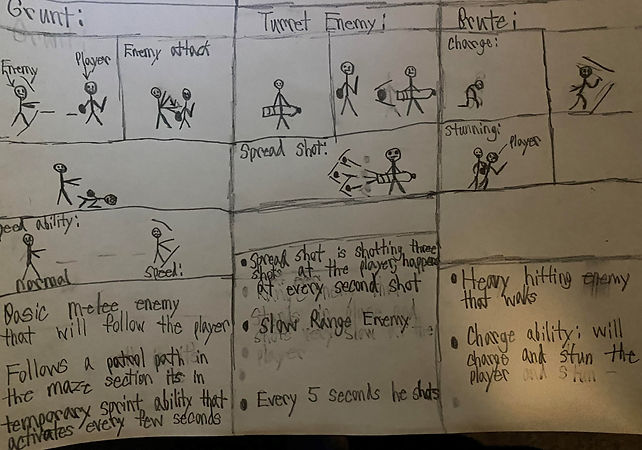 Grunt:
Enemy
Player
Enemy attack
eed ability:
normal
Speed:
Basic melee enemy
that will follow the player
Follows a patrol path in
the maze section its in
temporary sprint ability that
activates every few seconds
Turret Enemy:
Spread shot:
• Spread shot is shotting three
shots at the player, happens
at every second shot
• Slow Range Enemy
• Every 5 seconds he shots
Brute:
Charge:
Stunning:
Player
• Heavy hitting enemy
that walks
• Charge ability: will
charge and stun the
player